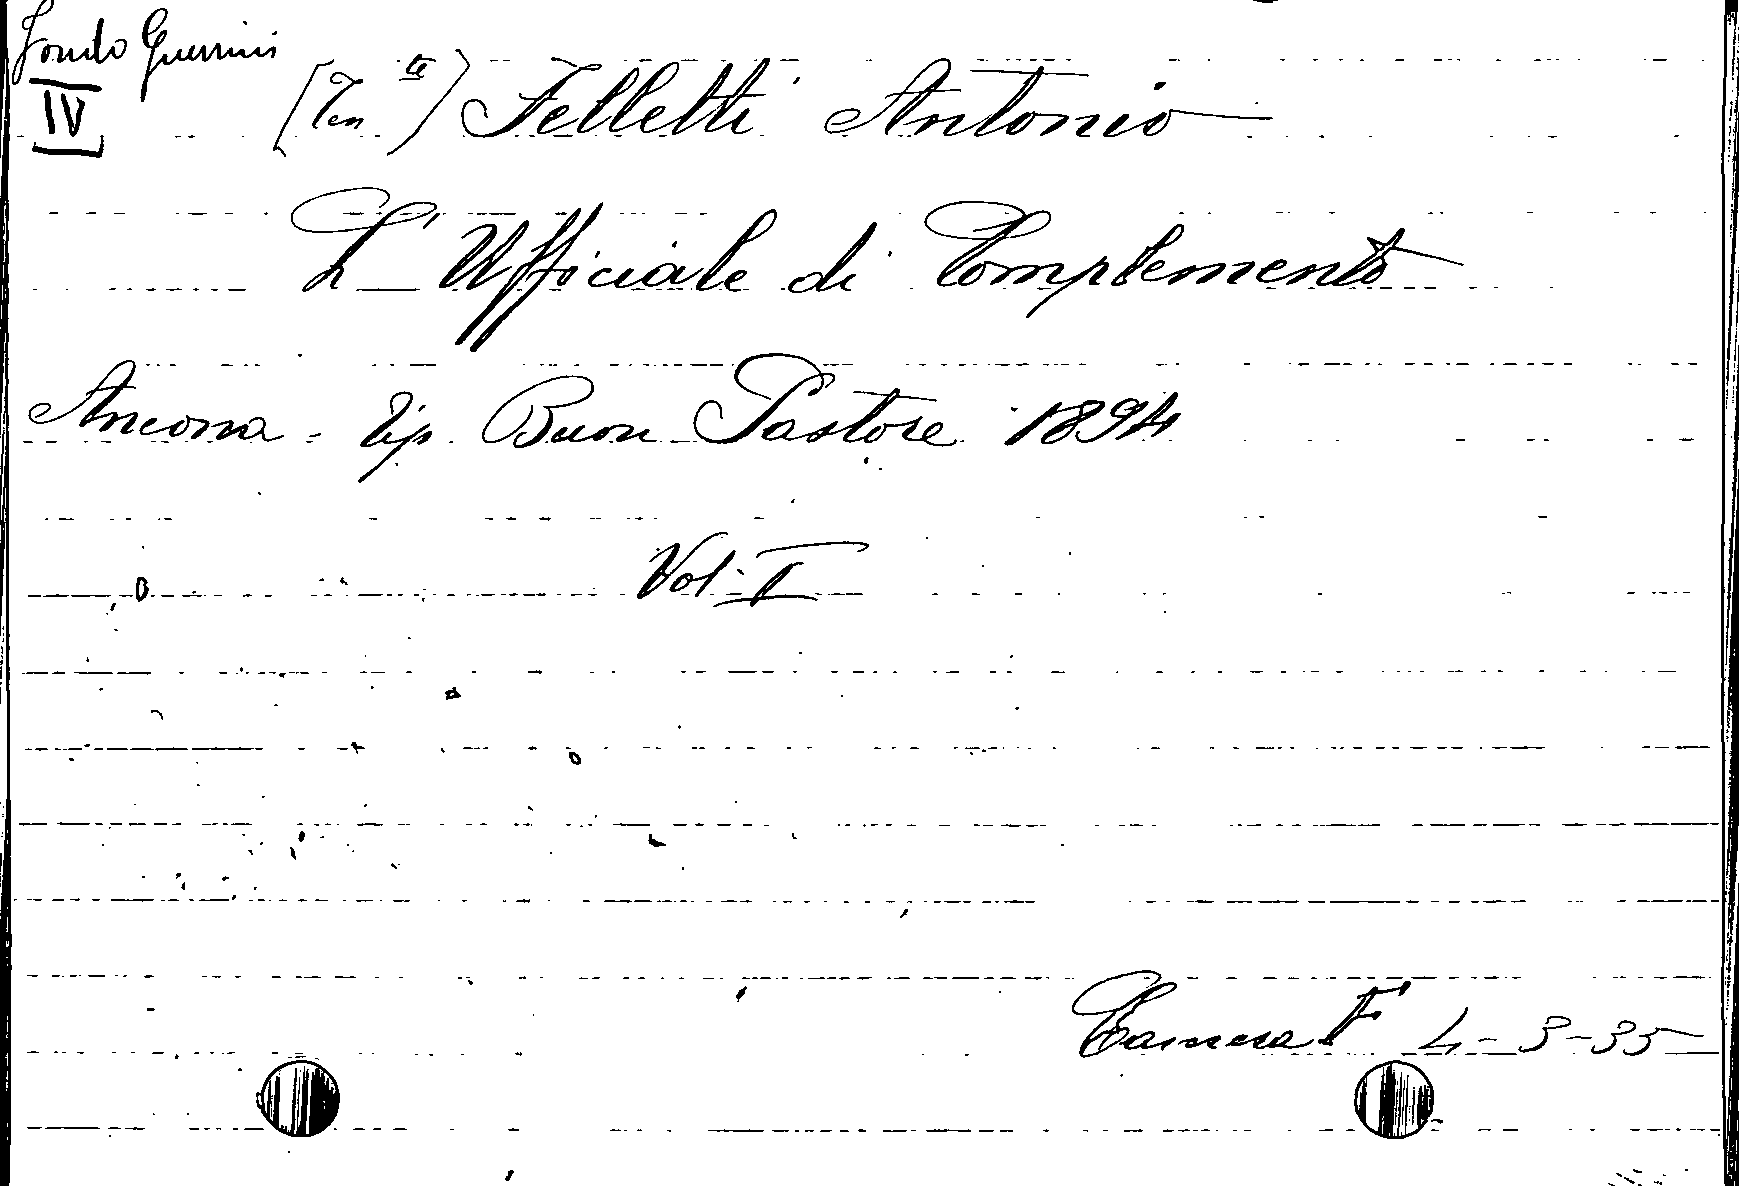 Fondo Guerrini
IV
(Ten.te) Felletti Antonio
L'Ufficiale di Complemento
Ancona - Tip. Buon Pastore 1894
Vol. I
Camera F 4-3-35